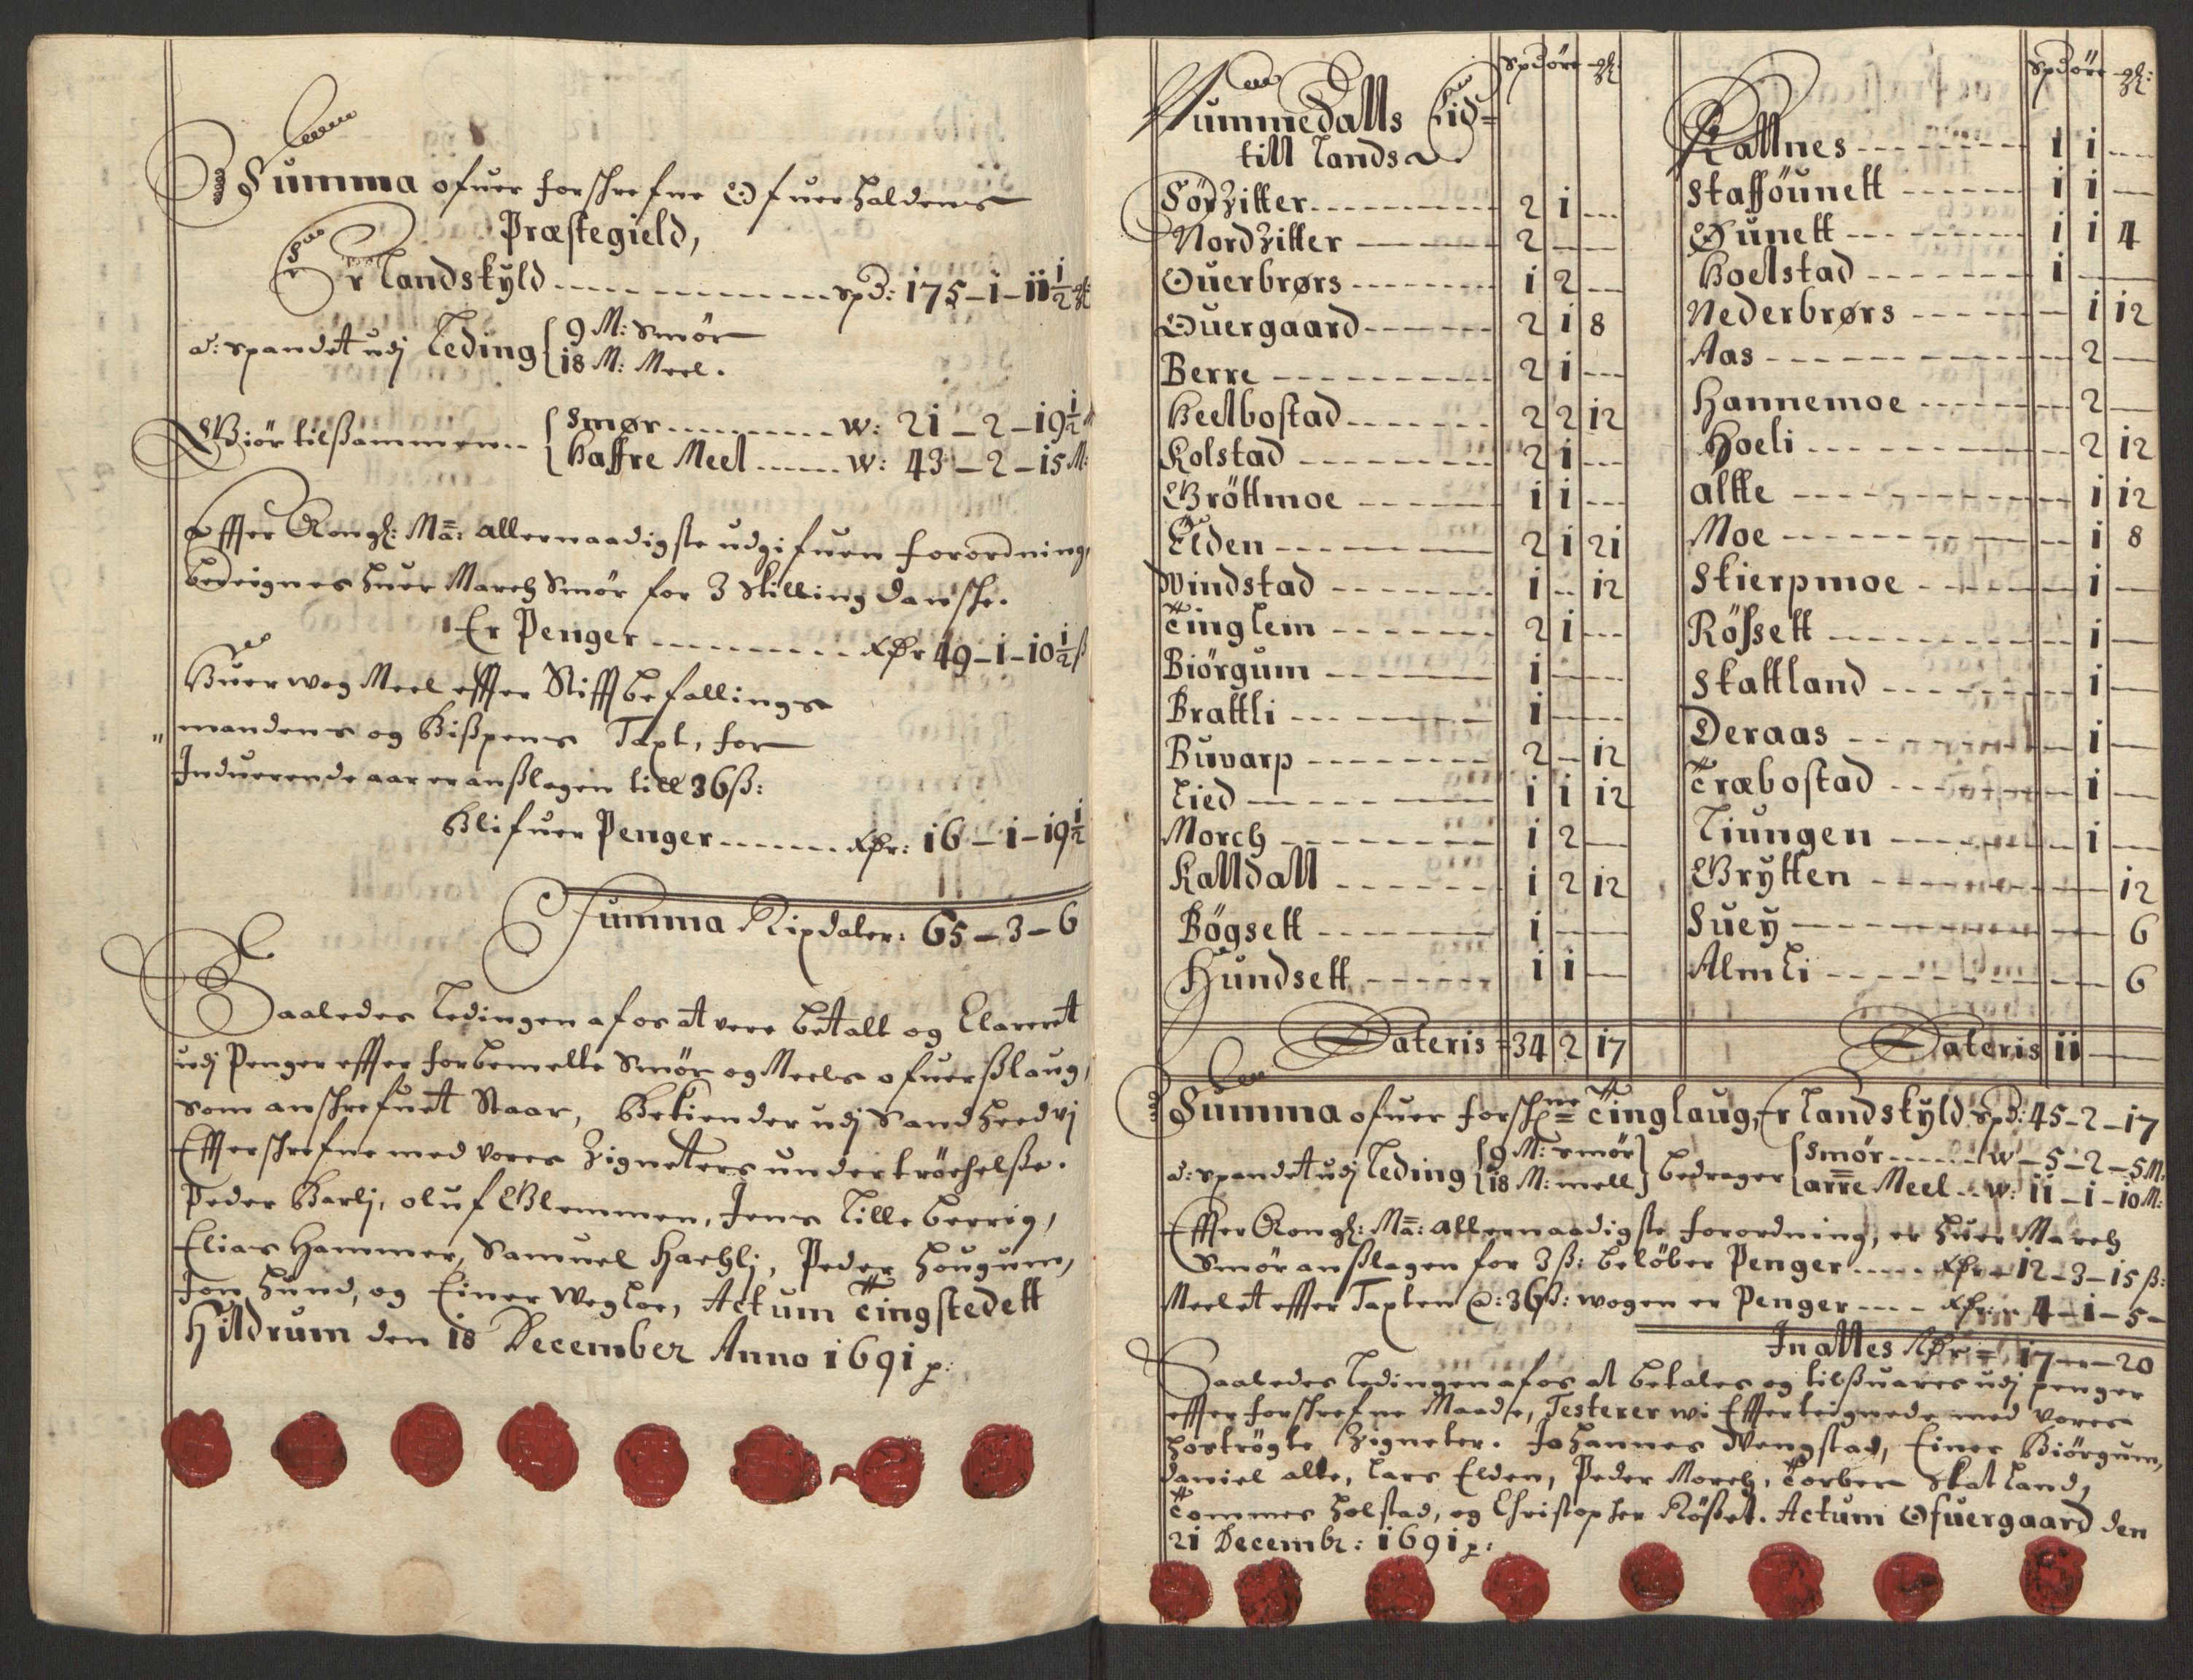 Summa ofuer forschrefne Ofuerhaldens
Præstegield,
Er Landskÿld spd: 175-1-11½
a: spandet udj Leding 9 M: Smör
18 M: Meel.
Giör tilsammen Smør w: 21-2-19½
Haffre Meel w: 43-2-15 M:
Effter Kongl: Ma: allernaadigste udgifuen forordning,
beregnes huer March Smör for 3 Skilling Danske.
Er Penger Rdr 49-1-10½ ß
Huer wog Meel effter Stifftbefallings
mandens og Bispens Taxt, for
Indverende aar er anslagen till 36 ß:
Blifuer Penger Rdr: 16-1-19½
Summa Rixdaler: 65-3-6
Saaledes Ledingen af os at vere betalt og Clareret
udj Penger effter forbemelte Smör og Meels ofuerslaug,
som anschrefuet Staar, Bekiender udj Sandhed vj
Effterschrefne med vores Zigneters undertröchelsse.
Peder Barlj, oluf Glemmen, Jens Lilleberrig,
Elias Hammer, Samuel Hachlj, Peder Hougum,
Jon Hund, og Einer Wegloe, Actum Tingstedett
Hildrum den 18 December Anno 1691 p:
Nummedalls Lid=
till Lands
spd öre
Sörzitter 2 1
Nordzitter 2
Ouerbrørs 1 2
Ouergaard 2 1 8
Berre 2 1
Heelbostad 2 2 12
Kolstad 2 1
Gröttmoe 1 1
Elden 2 1 21
Windstad 1 12
Tinglein 2 1
Biörgum 1
Brattli 1
Buvarp 2 12
Lied 1 1 12
Morch 1 2
Kalldall 1 2 12
Bögsett 1
Hundsett 1 1
Lateris 34 2 17
spd öre
Kallnes 1 1
Stafföunett 1 1
Øunett 1 1 4
Hoelstad 1
Nederbrørs 1 12
Aas 2
Hannemoe 2
Hoeli 2 12
altte 1 12
Moe 1 8
Skierpmoe 1
Rössett 1
Skattland 1
Deraas 1
Træbostad 1
Liungen 1
Grÿtten 12
Sueÿ 6
Almli 6
Lateris 11
Summa ofuer forschne Tinglaug, Er Landskÿld spd: 45-2-17
a: spandet udj Leding 9 M: smör 18 M: mell bedrager Smör w-5-2-5 M:
arre Meel w: 11-1-10 M:
Effter Kongl: Ma: allernaadigste forordning, er huer March
Smör anslagen for 3 ß: belöber Penger Rdr 12-3-15 ß:
Meelet effter Taxten @: 36 ß: wogen er Penger Rdr: 4-1-5-
In alles Rdr = 17-20
Saaledes Ledingen af os at betales og tilsuares udj penger
effter forschrefne Maade, Testerer wi Effterteignede med vores
hoströgte Zigneter. Johannes Wengstad, Einer Biörgum,
Daniel alte, Lars Elden, Peder Morch, Torber Skatland,
Tommes Holstad, og Christopher Rösset. Actum Ofuergaard den
21 Decembr: 1691 p: